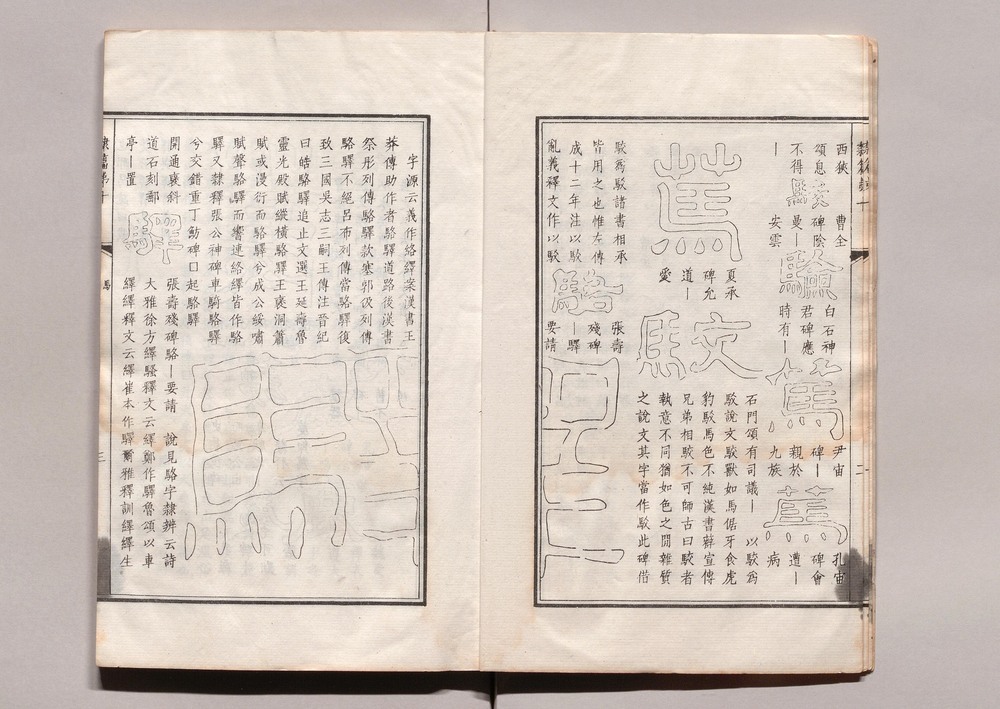 西狹
頌息
不得
｜
曹全
碑陰
曼｜
安雲
驗
白石神
君碑應
時有｜
篤
尹宙
碑｜
親於
九族
孔宙
碑會
遭｜
病
夏承
碑允
道｜
愛
駮
石門頌有司議｜　以駮爲
駁說文駮獸如馬倨牙食虎
豹駁馬色不純漢書薛宣傳
兄弟相駮不可師古曰駮者
執意不同猶如色之閒雜質
之說文其字當作駁此碑借
駮爲駁諸書相承
皆用之也惟左傳
成十二年注以駮
亂義釋文作以駁
駱
張壽
殘碑
｜驛
要請
驛
字源云義作絡繹案漢書王
莽傳助作者駱驛道路後漢書
祭彤列傳駱驛款塞郭伋列傳
駱驛不絕呂布列傳當駱驛復
致三國吳志三嗣王傳注晉紀
曰皓駱驛追止文選王延壽魯
靈光殿賦縱橫駱驛王襃洞簫
賦或漫衍而駱驛兮成公綏嘯
賦聲駱驛而響連絡繹皆作駱
驛又隸釋張公神碑車騎駱驛
兮交錯重丁魴碑囗起駱驛
開通襃斜
道石刻郵
亭｜置
驛
張壽殘碑駱｜要請　說見駱字隸辨云詩
大雅徐方繹騷釋文云繹鄭作驛魯頌以車
繹繹釋文云繹崔本作驛爾雅釋訓繹繹生
馬
三